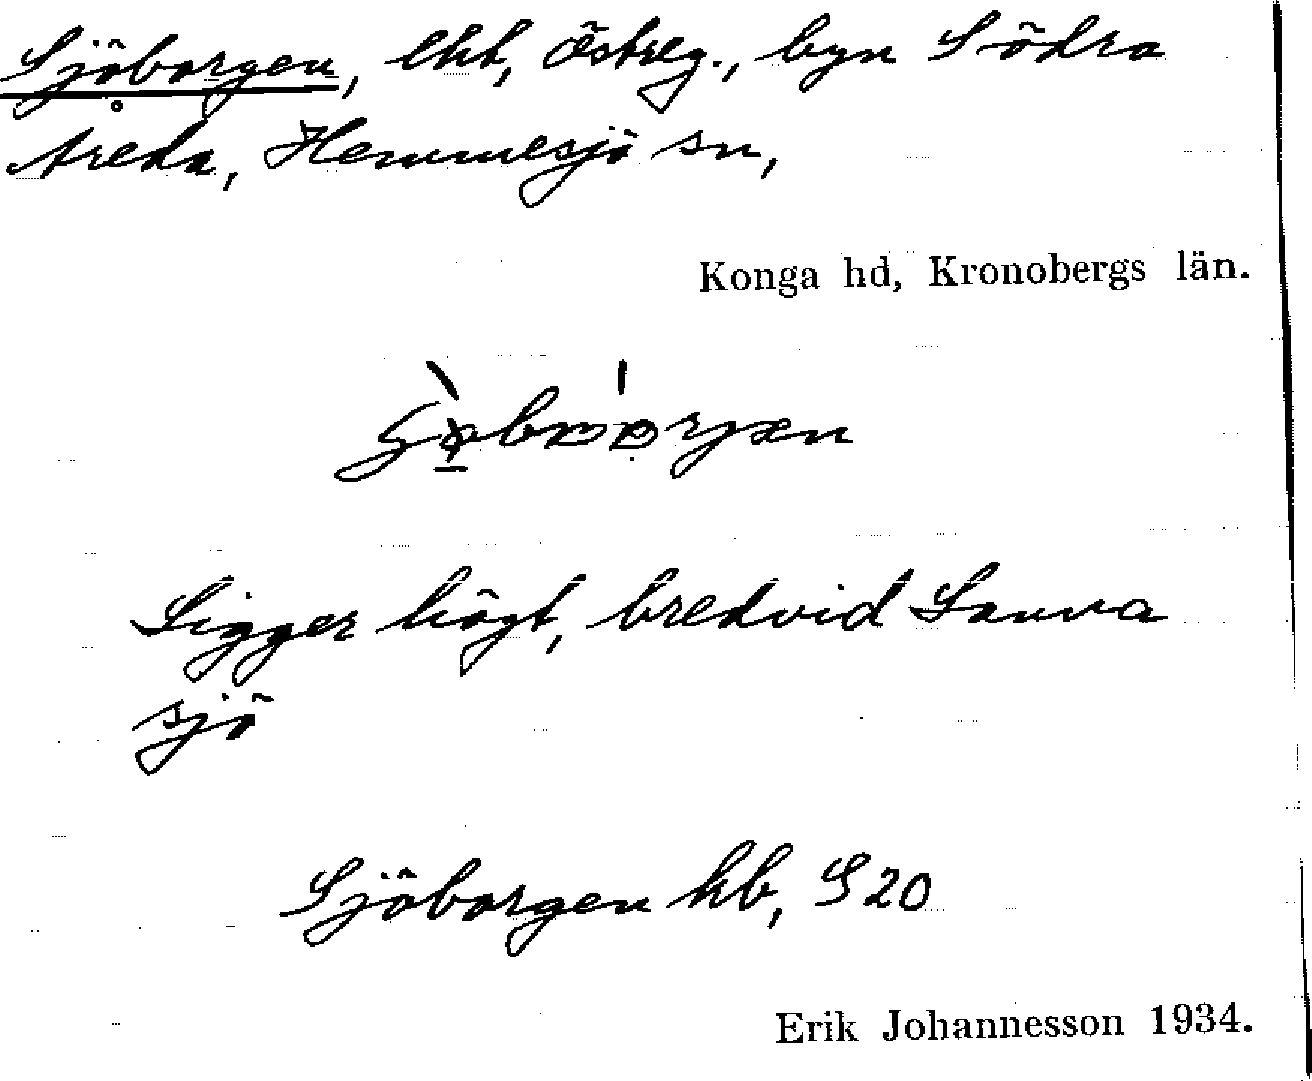 Sjöborgen, lht, Östreg., byn Södra
Åreda, Hemmesjö sn,
Konga hd, Kronobergs län.
Ligger högt, bredvid Sanna
sjö
Sjöborgen hb, S 20
Erik Johannesson 1934.